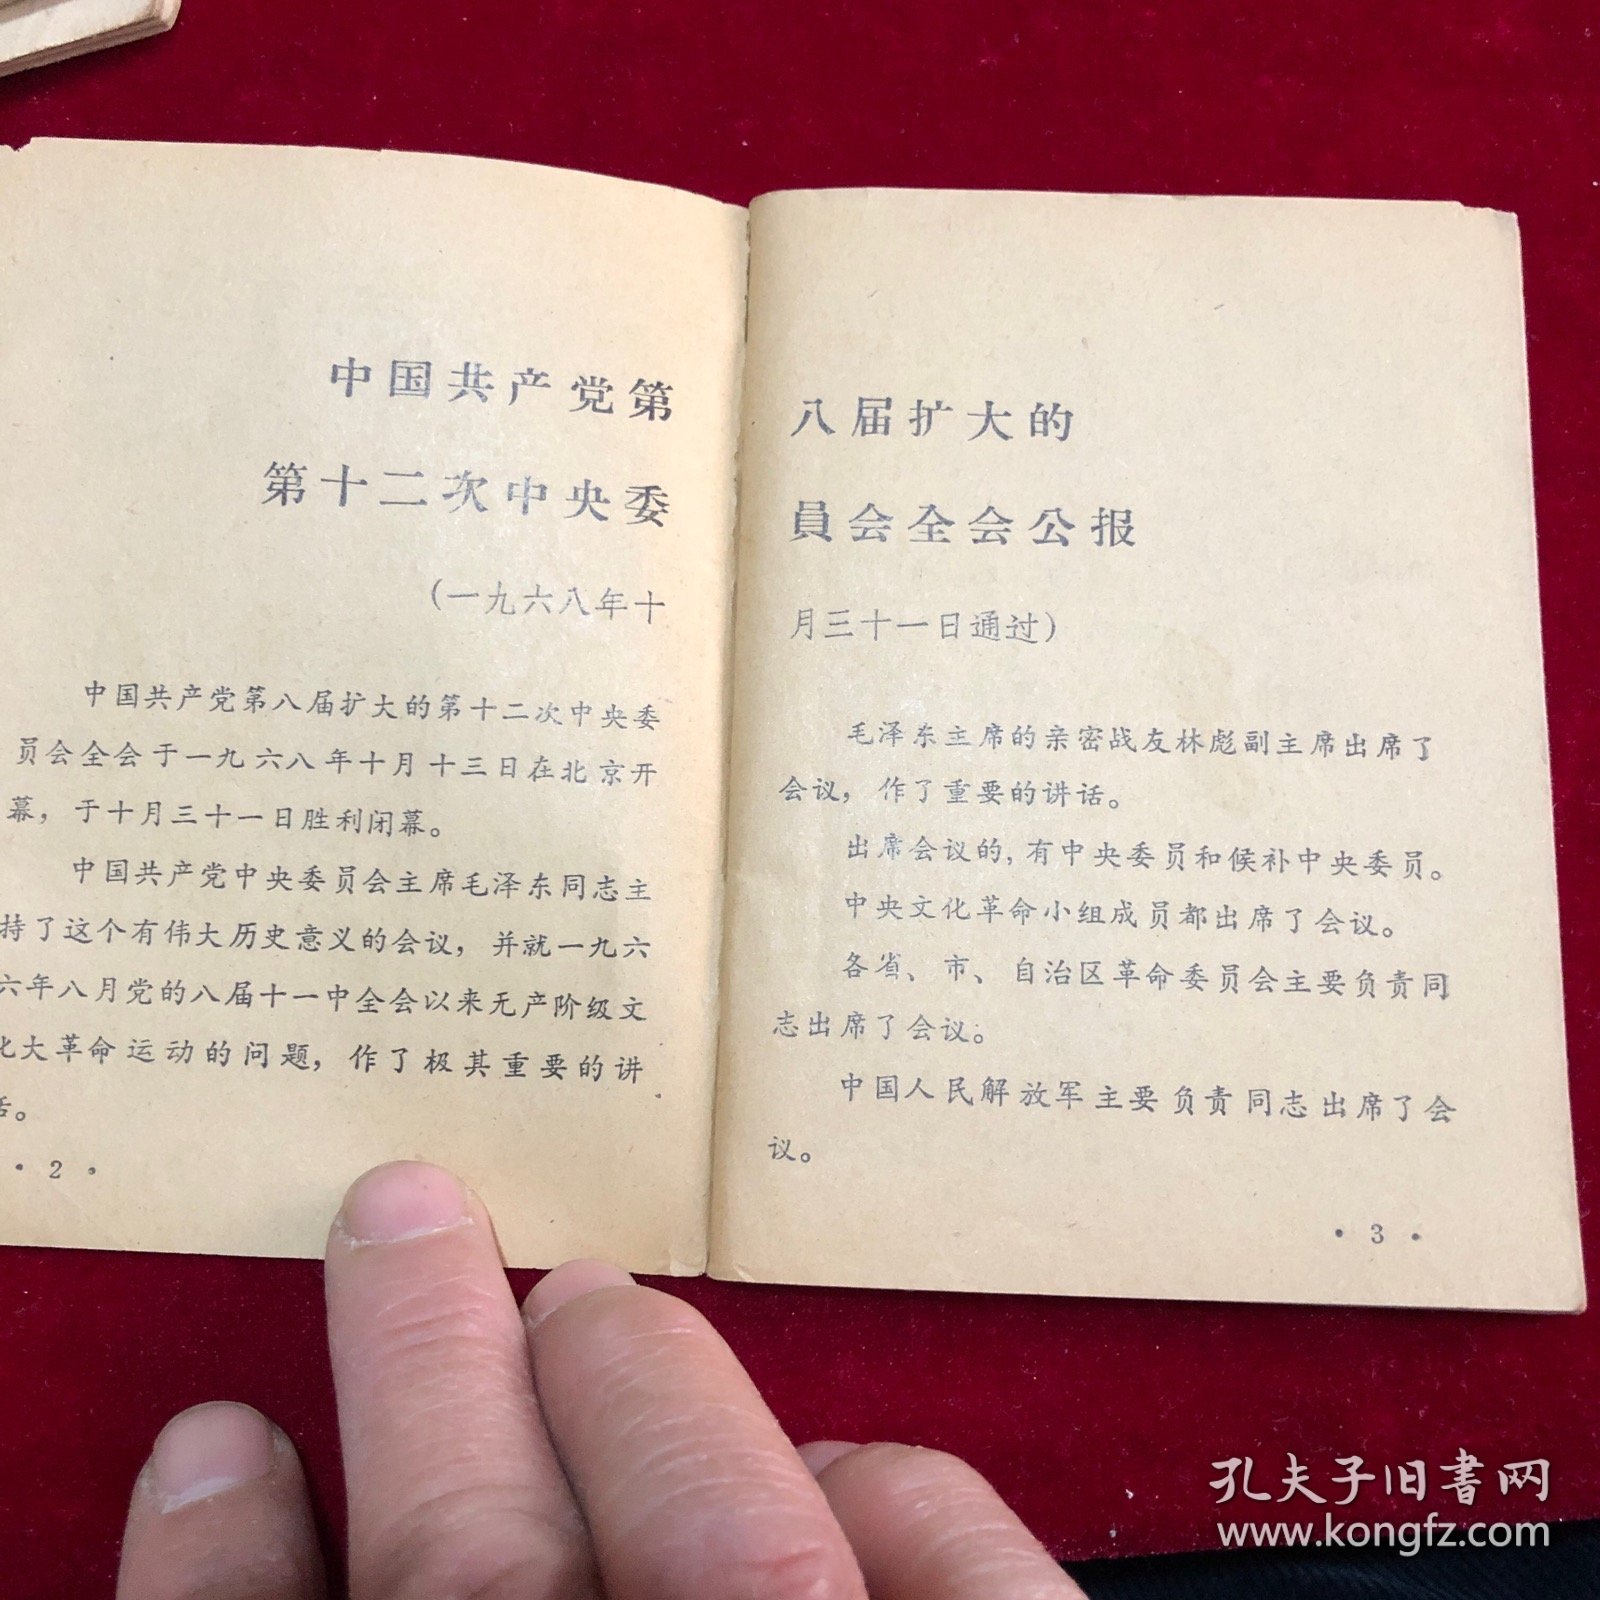 中国共产党第
第十二次中央委
(一九六八年十
中国共产党第八届扩大的第十二次中央委
员会全会于一九六八年十月十三日在北京开
幕，于十月三十一日胜利闭幕。
中国共产党中央委员会主席毛泽东同志主
持了这个有伟大历史意义的会议，并就一九六
六年八月党的八届十一中全会以来无产阶级文
化大革命运动的问题，作了极其重要的讲
话。
• 2 •
八届扩大的
員会全会公报
月三十一日通过)
毛泽东主席的亲密战友林彪副主席出席了
会议，作了重要的讲话。
出席会议的，有中央委员和候补中央委员。
中央文化革命小组成员都出席了会议。
各省、市、自治区革命委员会主要负责同
志出席了会议。
中国人民解放军主要负责同志出席了会
议。
• 3 •
孔夫子旧書网
www.kongfz.com